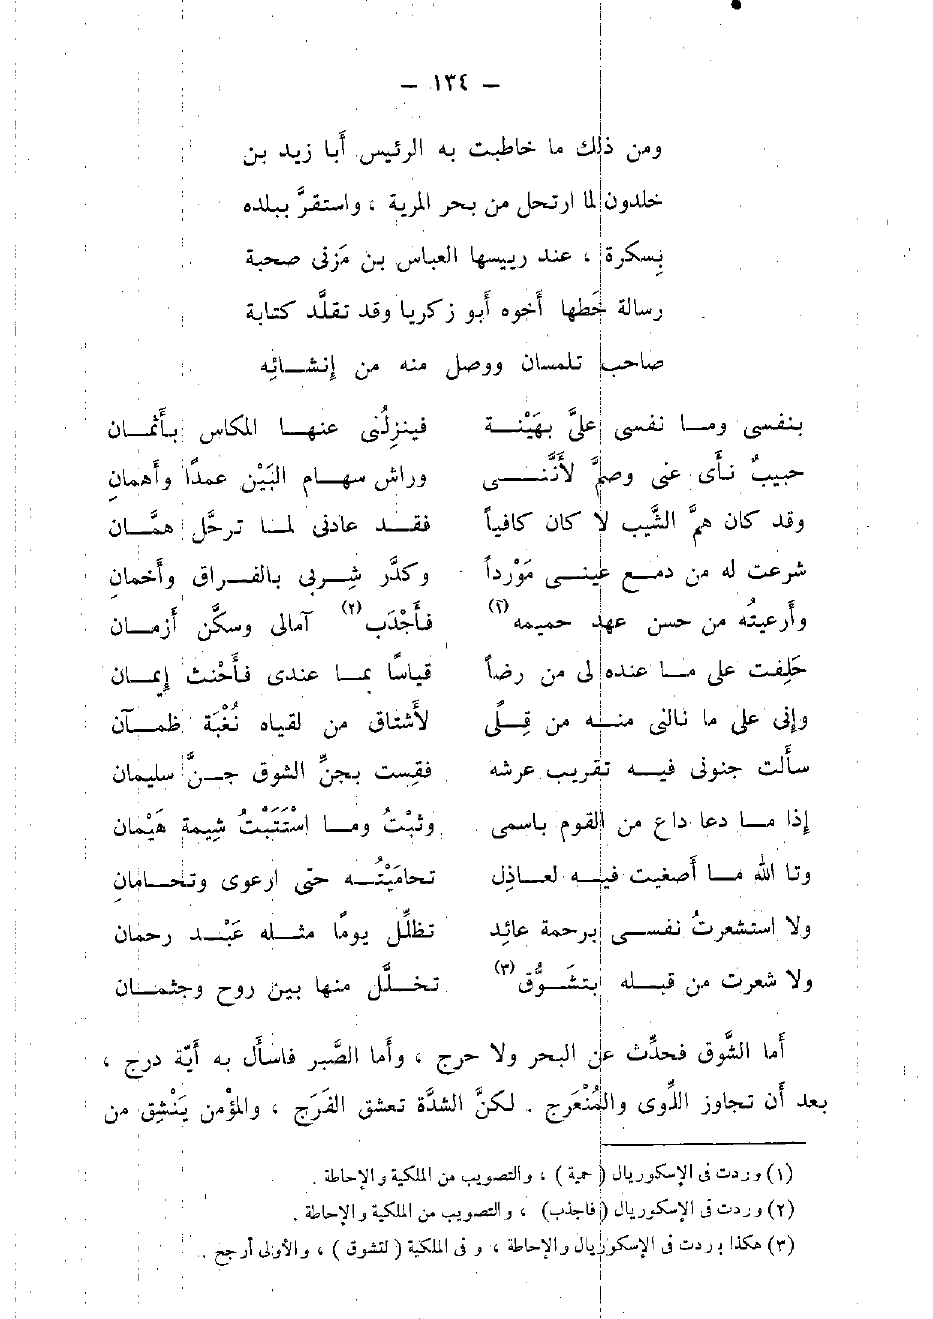 – ١٣٤ –
ومن ذلك ما خاطبت به الرئيس أبا زيد بن
خلدون لما ارتحل من بحر المرية ، واستقرَّ ببلده
بسكرة ، عند رييسها العباس بن مَزنى صحبة
رسالة خَطها أخوه أبو زكريا وقد تقلَّد كتابة
صاحب تلمسان ووصل منه من إنشــائه
بنفسى ومــا نفسى علىَّ بهَيْنــة فينزِلُنى عنهــا المكاس بأَثمــان
حبيبٌ نأَى عنى وصمَّ لأَنَّنــــى وراش سهــام البَيْن عمدًا وأَهمانِ
وقد كان همَّ الشَّيب لا كان كافياً فقــد عادنى لمــا ترحَّل همَّــان
شرعت له من دمــع عينــى مَوْرداً وكدَّر شِــربى بالفــراق وأَخمانِ
وأَرعيتُه من حسن عهد حميمه (١) فأَجْدَب (٢) آمالى وسكَّن أَزمــان
حَلِفت على مــا عنده لى من رضاً قياسًا بمــا عندى فأَحْنث إيمــان
وإنى على ما نالنى منــه من قِــلًى لأَشتاق من لقياه نُغْبَة ظمــآن
سأَلت جنونى فيــه تقريب عرشه فقِست بجنِّ الشوق جــنَّ سليمان
إذا مــا دعا داع من القوم باسمى وثبْتُ ومــا اسْتَثَبْتُ شيمة هَيْمان
وتا الله مــا أَصغيت فيــه لعــاذِل تحامَيْتُــه حتى ارعوى وتحــامانِ
ولا استشعرتُ نفســى برحمة عائد تظلَّل يومًا مثــله عَبْــد رحمان
ولا شعرت من قبــله بتشَــوُّق (٣) تخــلَّل منها بين روح وجثمــان
أَما الشَّوق فحدِّث عن البحر ولا حرج ، وأَما الصَّبر فاسأَل به أَيّة درج ،
بعد أَن تجاوز اللِّوى والمُنْعَرج . لكنَّ الشدَّة تعشق الفَرَج ، والمؤمن يَنْشِق من
(١) وردت فى الإسكوريال ( حمية ) ، والتصويب من الملكية والإحاطة .
(٢) وردت فى الإسكوريال (فاجذب) ، والتصويب من الملكية والإحاطة .
(٣) هكذا وردت فى الإسكوريال والإحاطة ، و فى الملكية ( لتشوق ) ، والأولى أرجح .